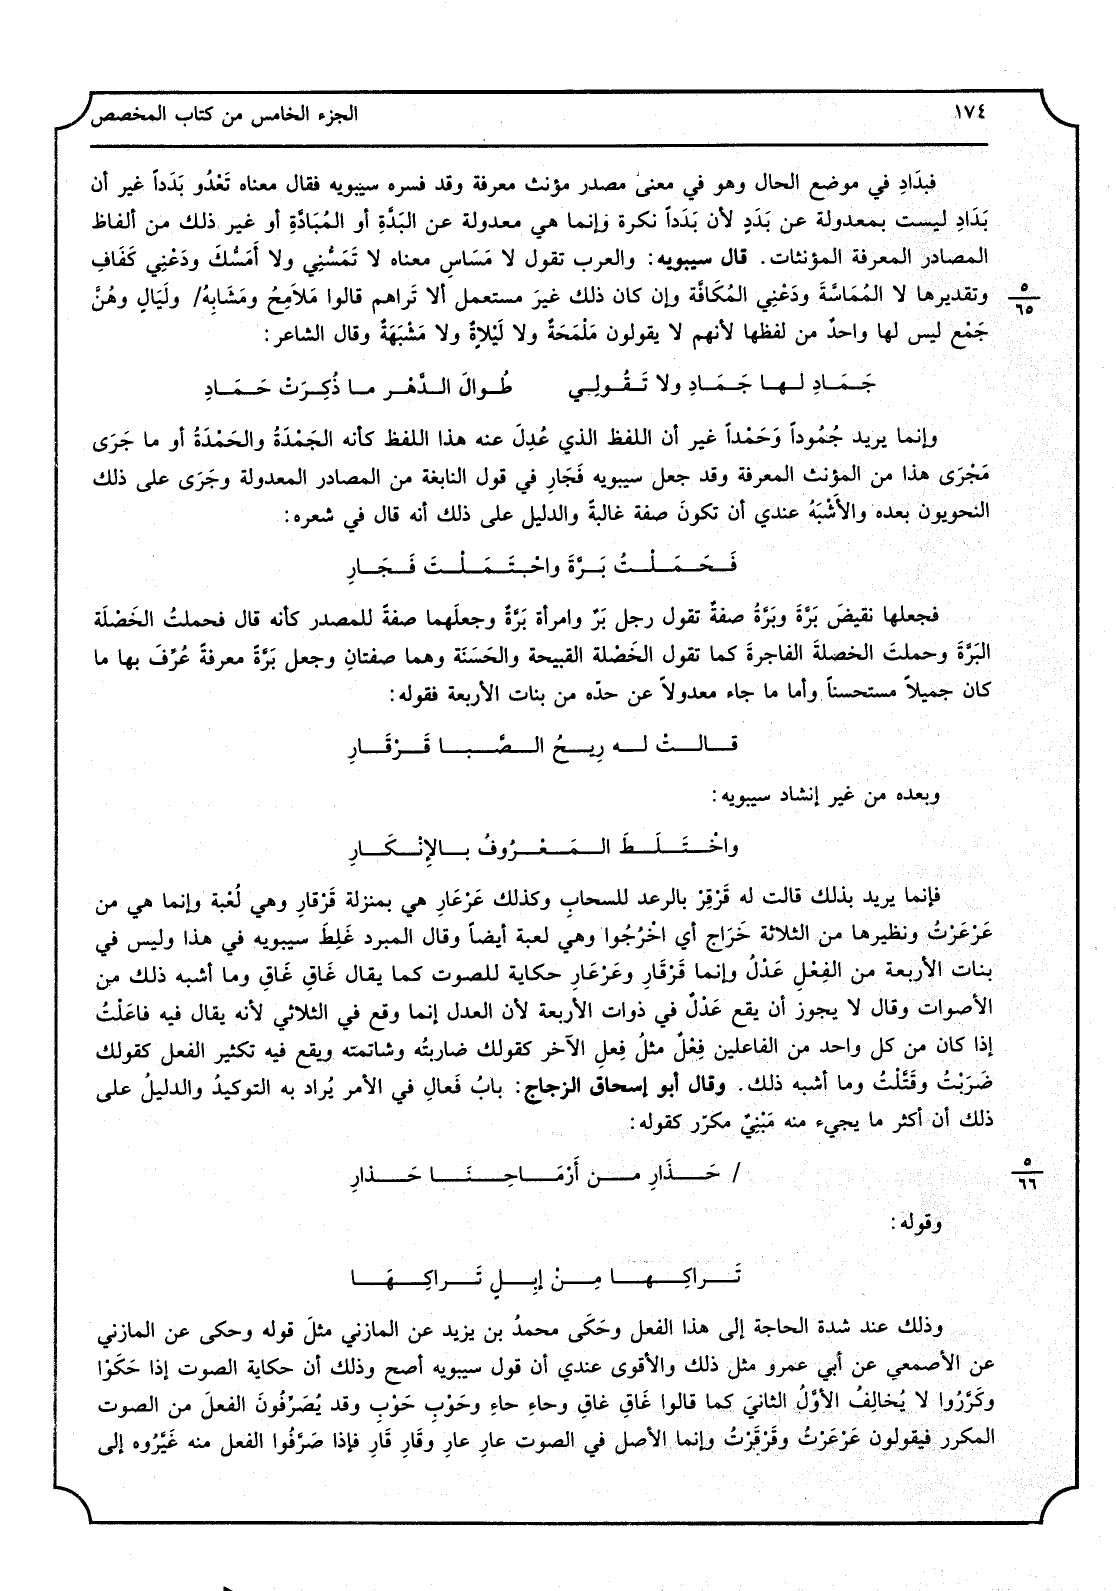 ١٧٤ الجزء الخامس من كتاب المخصص
فبدَادِ في موضع الحال وهو في معنى مصدر مؤنث معرفة وقد فسره سيبويه فقال معناه تَعْدُو بَدَداً غير أن
بَدَادِ ليست بمعدولة عن بَدَدٍ لأن بَدَداً نكرة وإنما هي معدولة عن البَدَّةِ أو المُبَادَّةِ أو غير ذلك من ألفاظ
المصادر المعرفة المؤنثات. قال سيبويه: والعرب تقول لا مَسَاسِ معناه لا تَمَسُّنِي ولا أَمَسُّكَ ودَعْنِي كَفَافِ
وتقديرها لا المُمَاسَّةَ ودَعْنِي المُكَافَّةَ وإن كان ذلك غيرَ مستعمل ألا تَراهم قالوا مَلاَمِحُ ومَشَابِهُ/ ولَيَالٍ وهُنَّ
٥
٦٥
جَمْع ليس لها واحدٌ من لفظها لأنهم لا يقولون مَلْمَحَةٌ ولا لَيْلاةٌ ولا مَشْبَهَةٌ وقال الشاعر:
جَمَادِ لها جَمَادِ ولا تَقُولِي طُوالَ الدَّهْر ما ذُكِرَتْ حَمَادِ
وإنما يريد جُمُوداً وَحَمْداً غير أن اللفظ الذي عُدِلَ عنه هذا اللفظ كأنه الجَمْدَةُ والحَمْدَةُ أو ما جَرَى
مَجْرَى هذا من المؤنث المعرفة وقد جعل سيبويه فَجَارِ في قول النابغة من المصادر المعدولة وجَرَى على ذلك
النحويون بعده والأَشْبَهُ عندي أن تكونَ صفة غالبةً والدليل على ذلك أنه قال في شعره:
فَحَمَلْتُ بَرَّةَ واحْتَمَلْتَ فَجَارِ
فجعلها نقيضَ بَرَّةَ وبَرَّةُ صفةٌ تقول رجل بَرٌ وامرأة بَرَّةٌ وجعلَهما صفةً للمصدر كأنه قال فحملتُ الخَصْلَة
البَرَّةَ وحملتَ الخصلةَ الفاجرةَ كما تقول الخَصْلة القبيحة والحَسَنَة وهما صفتانِ وجعل بَرَّةَ معرفةً عُرِّفَ بها ما
كان جميلاً مستحسناً وأما ما جاء معدولاً عن حدّه من بنات الأربعة فقوله:
قالتْ له رِيحُ الصَّبا قَرْقَارِ
وبعده من غير إنشاد سيبويه:
واخْتَلَطَ المَعْرُوفُ بالإِنْكَارِ
فإنما يريد بذلك قالت له قَرْقِرْ بالرعد للسحابِ وكذلك عَرْعَارِ هي بمنزلة قَرْقارِ وهي لُعْبة وإنما هي من
عَرْعَرْتُ ونظيرها من الثلاثة خَرَاج أي اخْرُجُوا وهي لعبة أيضاً وقال المبرد غَلِطَ سيبويه في هذا وليس في
بنات الأربعة من الفِعْلِ عَدْلٌ وإنما قَرْقَارِ وعَرْعَارِ حكاية للصوت كما يقال غَاقِ غَاقِ وما أشبه ذلك من
الأصوات وقال لا يجوز أن يقع عَدْلٌ في ذوات الأربعة لأن العدل إنما وقع في الثلاثي لأنه يقال فيه فاعَلْتُ
إذا كان من كل واحد من الفاعلين فِعْلٌ مثلُ فِعلِ الآخر كقولك ضاربتُه وشاتمته ويقع فيه تكثير الفعل كقولك
ضَرَبْتُ وقَتَّلْتُ وما أشبه ذلك. وقال أبو إسحاق الزجاج: بابُ فَعالِ في الأمر يُراد به التوكيدُ والدليلُ على
ذلك أن أكثر ما يجيء منه مَبْنِيّ مكرّر كقوله:
/ حَذَارِ من أَرْمَاحِنَا حَذارِ
٥
٦٦
وقوله:
تَراكِها مِنْ إبِلٍ تَراكِهَا
وذلك عند شدة الحاجة إلى هذا الفعل وحَكَى محمدُ بن يزيد عن المازني مثلَ قوله وحكى عن المازني
عن الأصمعي عن أبي عمرو مثل ذلك والأقوى عندي أن قول سيبويه أصح وذلك أن حكاية الصوت إذا حَكَوْا
وكَرَّرُوا لا يُخالِفُ الأوَّلُ الثانيَ كما قالوا غَاقِ غاقِ وحاءِ حاءِ وحَوْبِ حَوْبِ وقد يُصَرِّفُونَ الفعلَ من الصوت
المكرر فيقولون عَرْعَرْتُ وقَرْقَرْتُ وإنما الأصل في الصوت عارِ عارِ وقَارِ قَارِ فإذا صَرَّفُوا الفعل منه غَيَّرُوه إلى